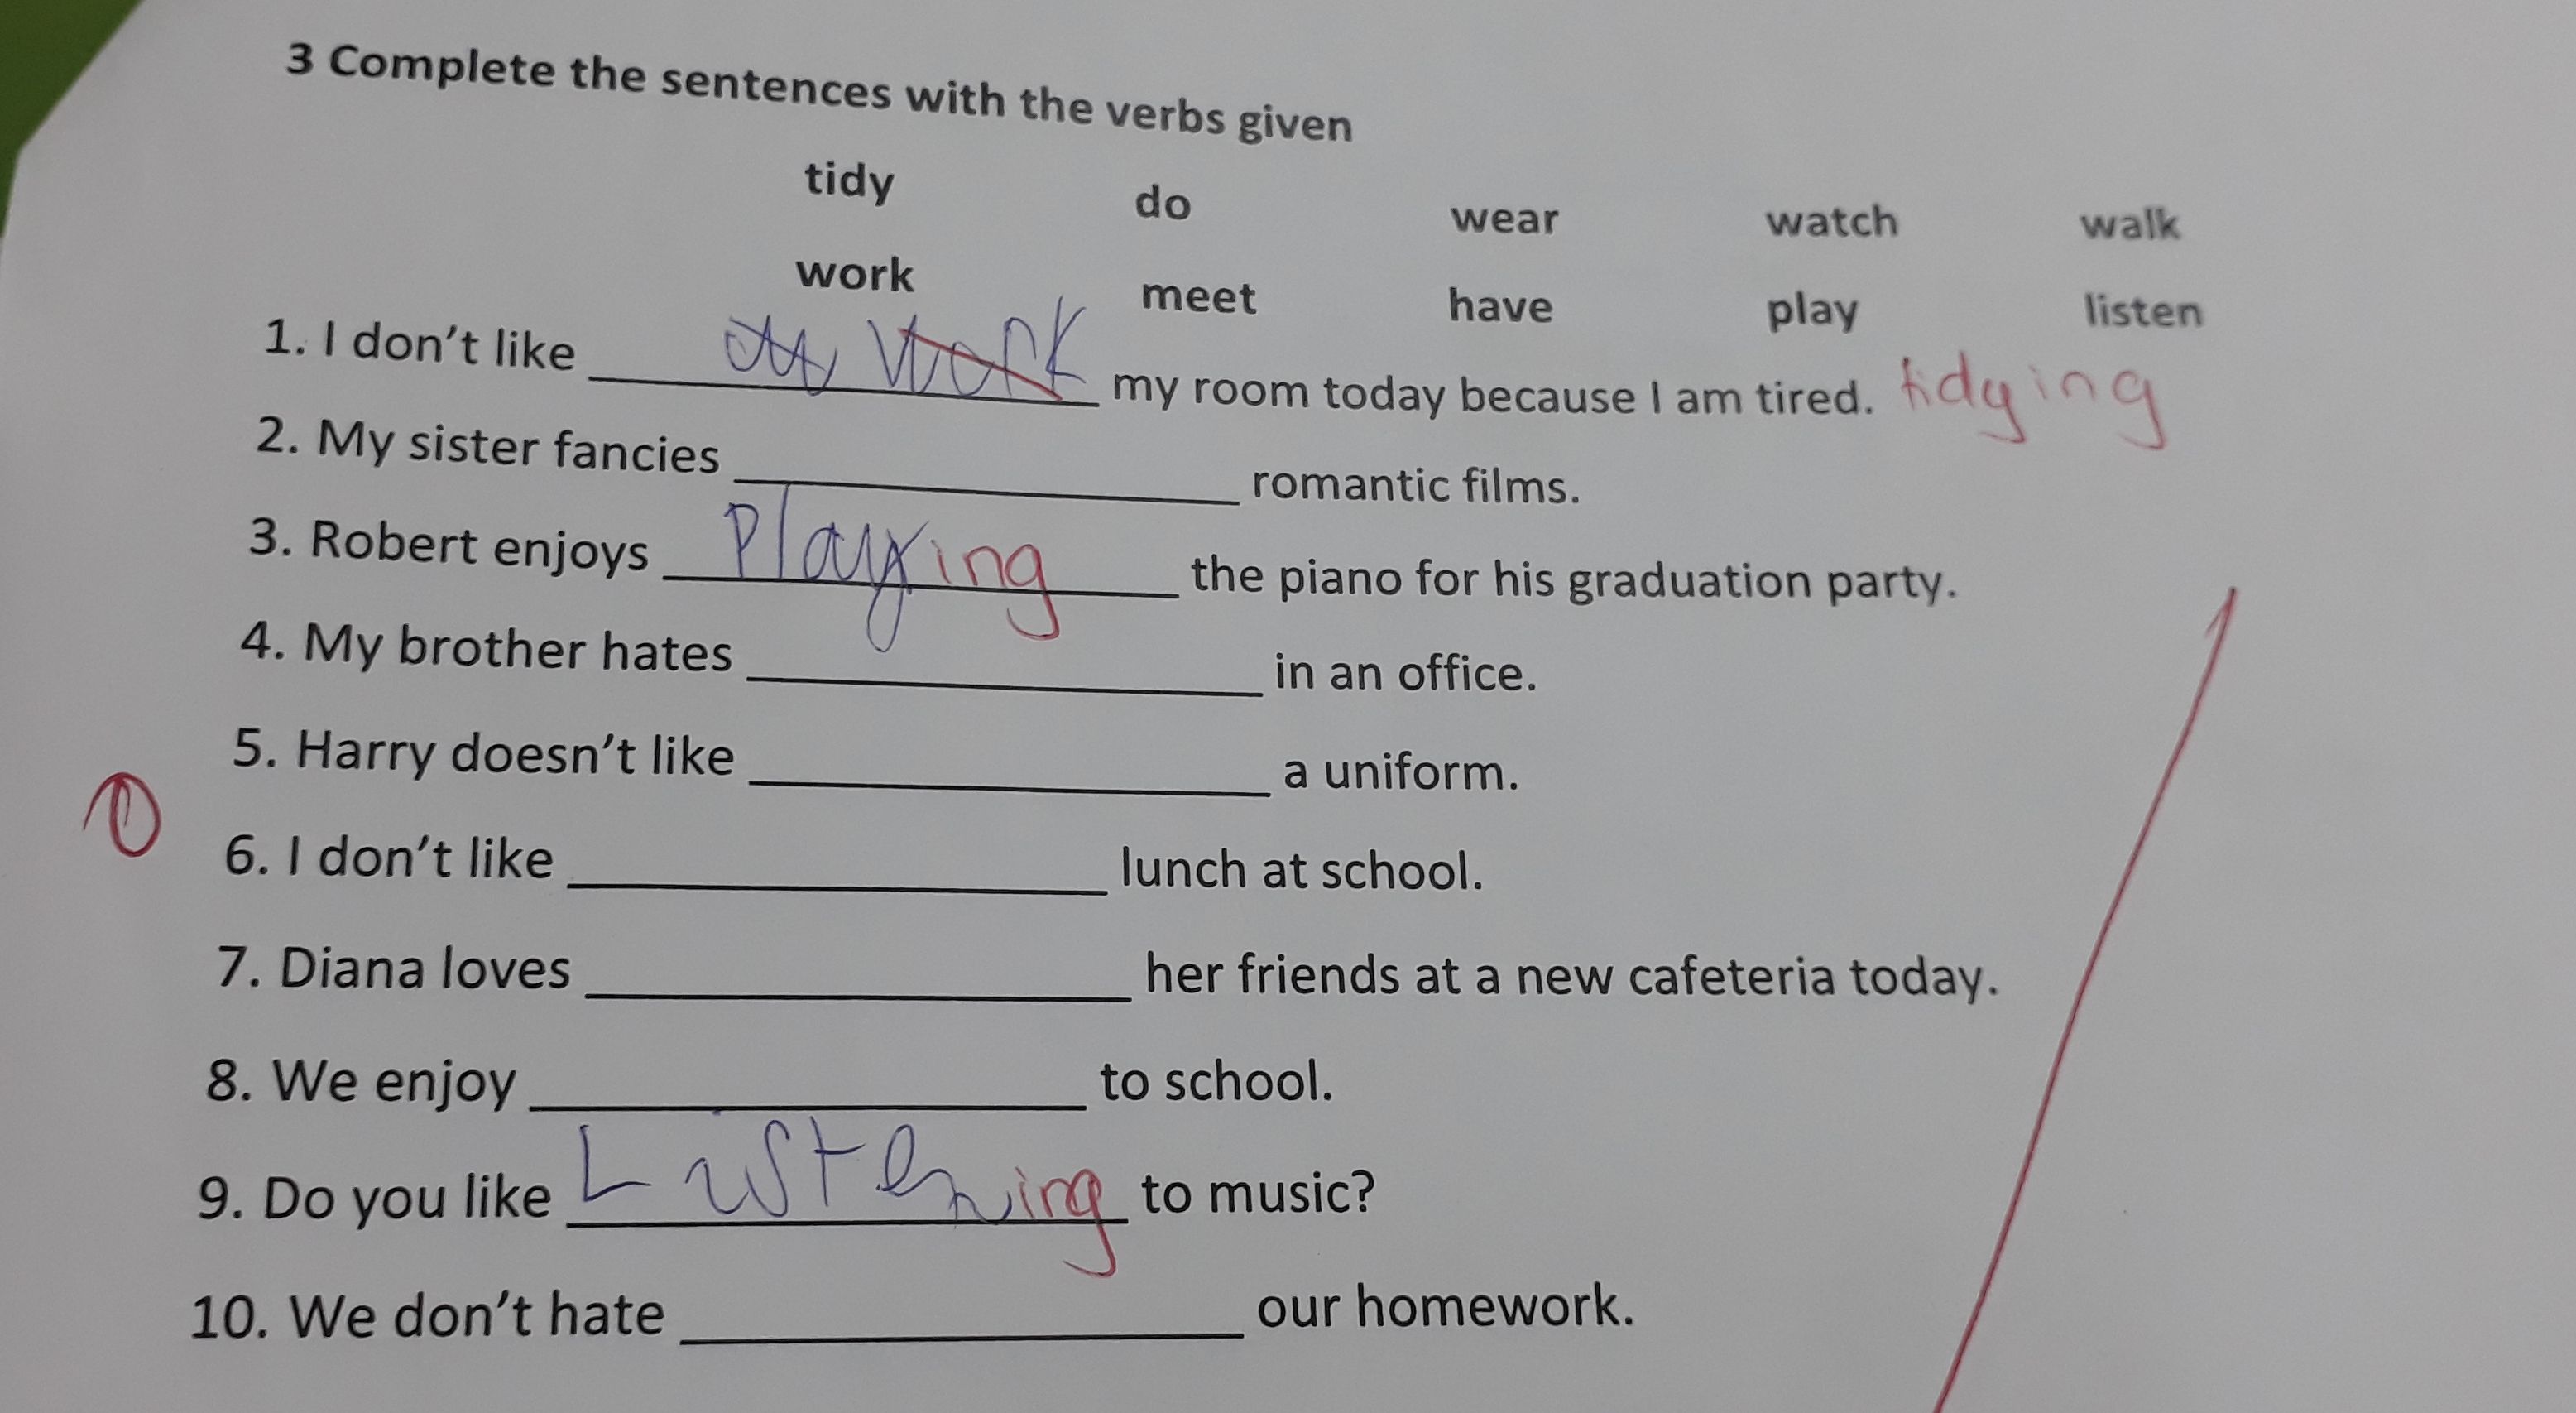 3 Complete the sentences with the verbs given
tidy do wear watch walk
work meet have play listen
1. I don't like work my room today because I am tired. tidying
2. My sister fancies ____ romantic films.
3. Robert enjoys Playing the piano for his graduation party.
4. My brother hates ____ in an office.
5. Harry doesn't like ____ a uniform.
6. I don't like ____ lunch at school.
7. Diana loves ____ her friends at a new cafeteria today.
8. We enjoy ____ to school.
9. Do you like Listening to music?
10. We don't hate ____ our homework.